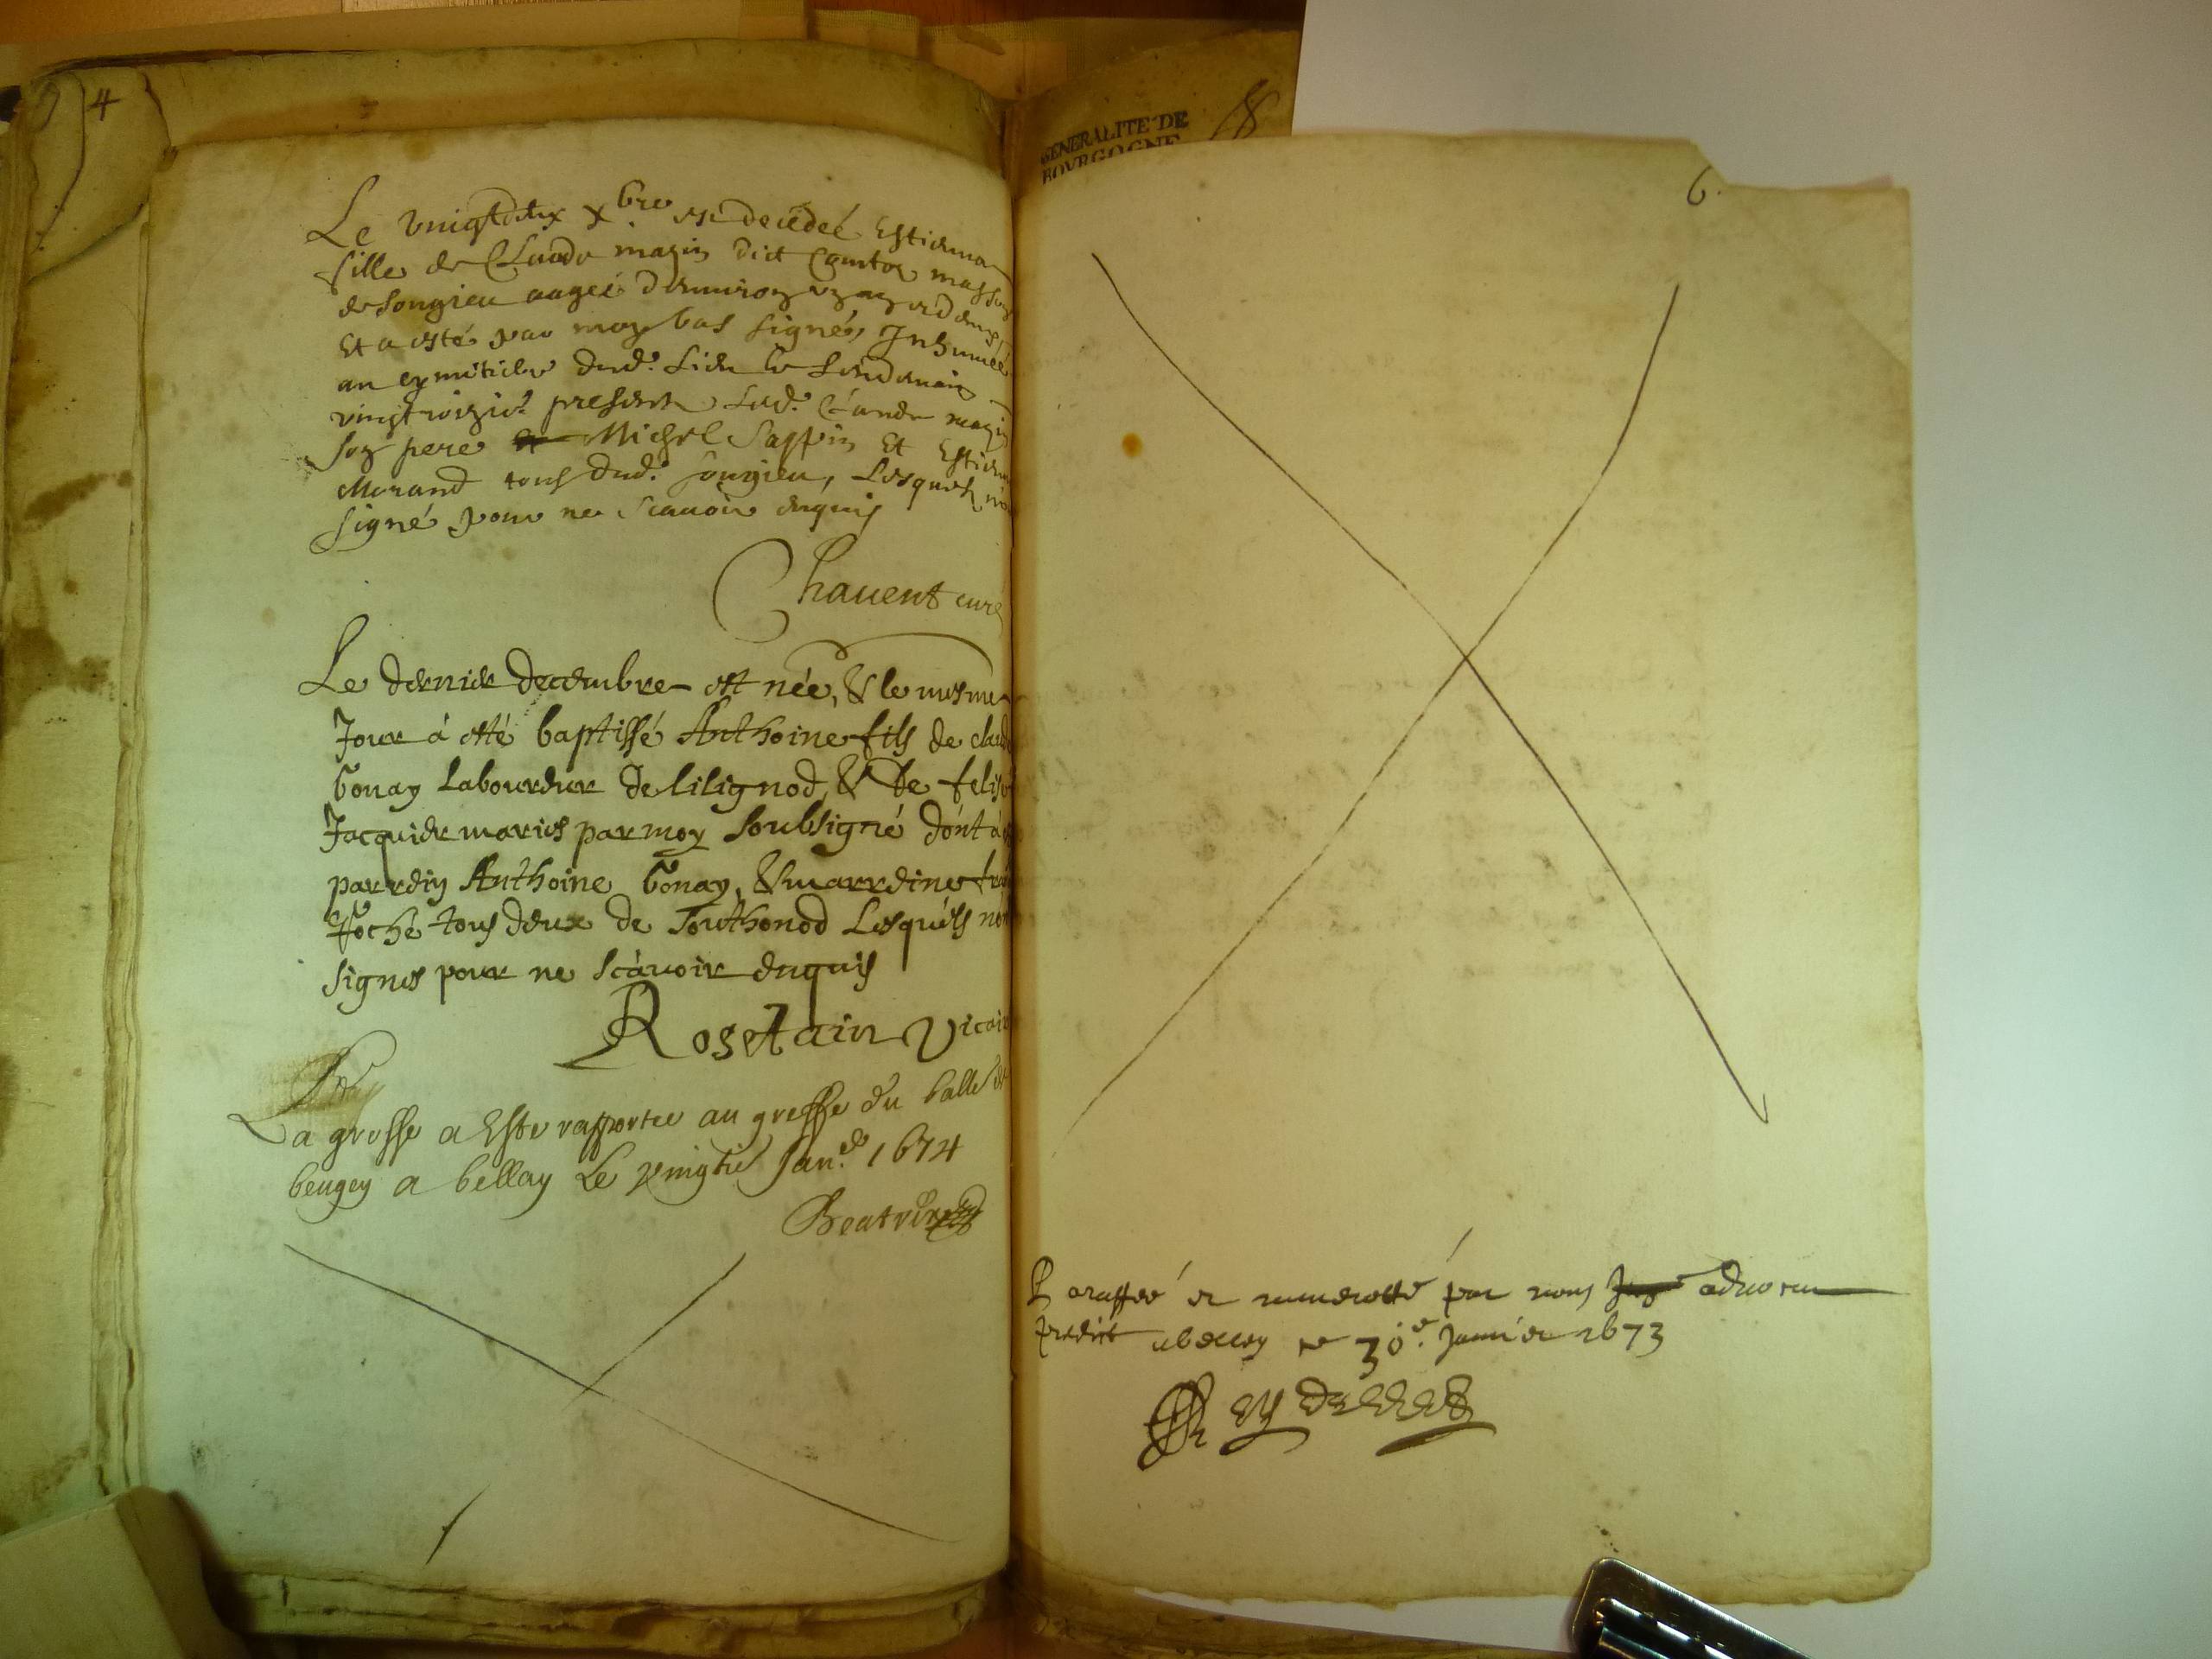 4
Le vingtdeux xbre est decedeé Estienna
fille de Claude mazin dict masson
de Songieu aageé d'enuiron
Et a esté par moy bas signé, Inhumeé
au cymitiere dud. Lieu le Lendemain
present Led. Claude mazin
son pere Michel Sappin Et Estienne
Morand tous dud. songieu, Lesquels n'on
signé pour ne scauoir enquis
Chauent curé
Le dernier decembre est née, & le mesme
Jour à esté baptissé Anthoine fils de claude
bonay Laboureur de lilignod, & de felise
Jacquier mariés par moy soubsigné dont à
parrein Anthoine bonay, & marreine
tous deux de Southonod Lesquels n'on
signes pour ne scàuoir enquis
Rostain vicair
La grosse a Esté rapportee au greffe du balle de
beugey a bellay Le vingtie Jan. 1674
GENERALITE DE
BOVRGOGNE
18
6.
Paraffee et numerotté par nous
a belley le 30e. Januier 1673